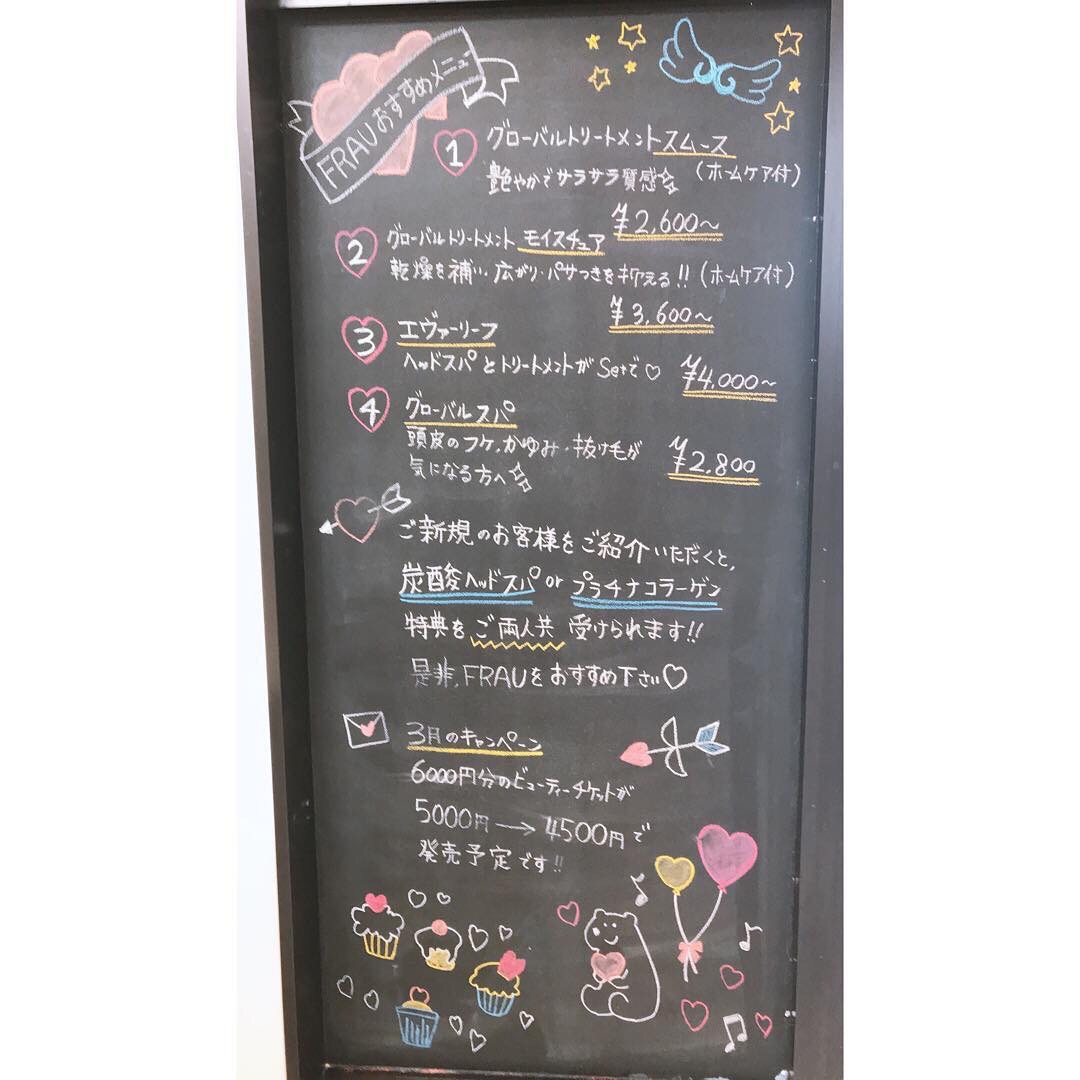 FRAUおすすめメニュー
1 グローバルトリートメントスムース
艶やかでサラサラ質感 (ホームケア付)
¥2,600〜
2 グローバルトリートメント モイスチュア
乾燥を補い・広がり・パサつきを抑える!! (ホームケア付)
¥3,600〜
3 エヴァーリーフ
ヘッドスパとトリートメントがSetで♡ ¥4,000〜
4 グローバルスパ
頭皮のフケ、かゆみ・抜け毛が
気になる方へ ¥2,800
ご新規のお客様をご紹介いただくと、
炭酸ヘッドスパ or プラチナコラーゲン
特典をご両人共 受けられます!!
是非、FRAUをおすすめ下さい♡
3月のキャンペーン
6000円分のビューティーチケットが
5000円→4500円で
発売予定です!!